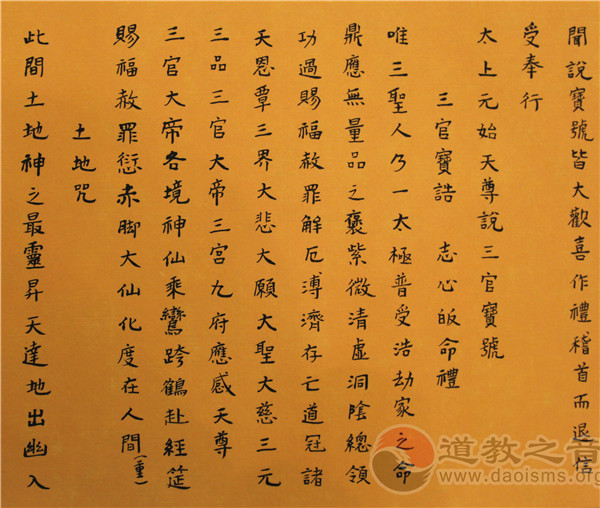 聞說寶號皆大歡喜作禮稽首而退信
受奉行
太上元始天尊說三官寶號
三官寶誥 志心皈命禮
唯三聖人乃一太極普受浩劫家之命
鼎應無量品之褒紫微清虛洞陰總領
功過賜福赦罪解厄溥濟存亡道冠諸
天恩覃三界大悲大願大聖大慈三元
三品三官大帝三宮九府應感天尊
三官大帝各境神仙乘鸞跨鶴赴經筵
賜福赦罪愆赤脚大仙化度在人間(重)
土地咒
此間土地神之最靈昇天達地出幽入
道教之音
www.daoisms.org